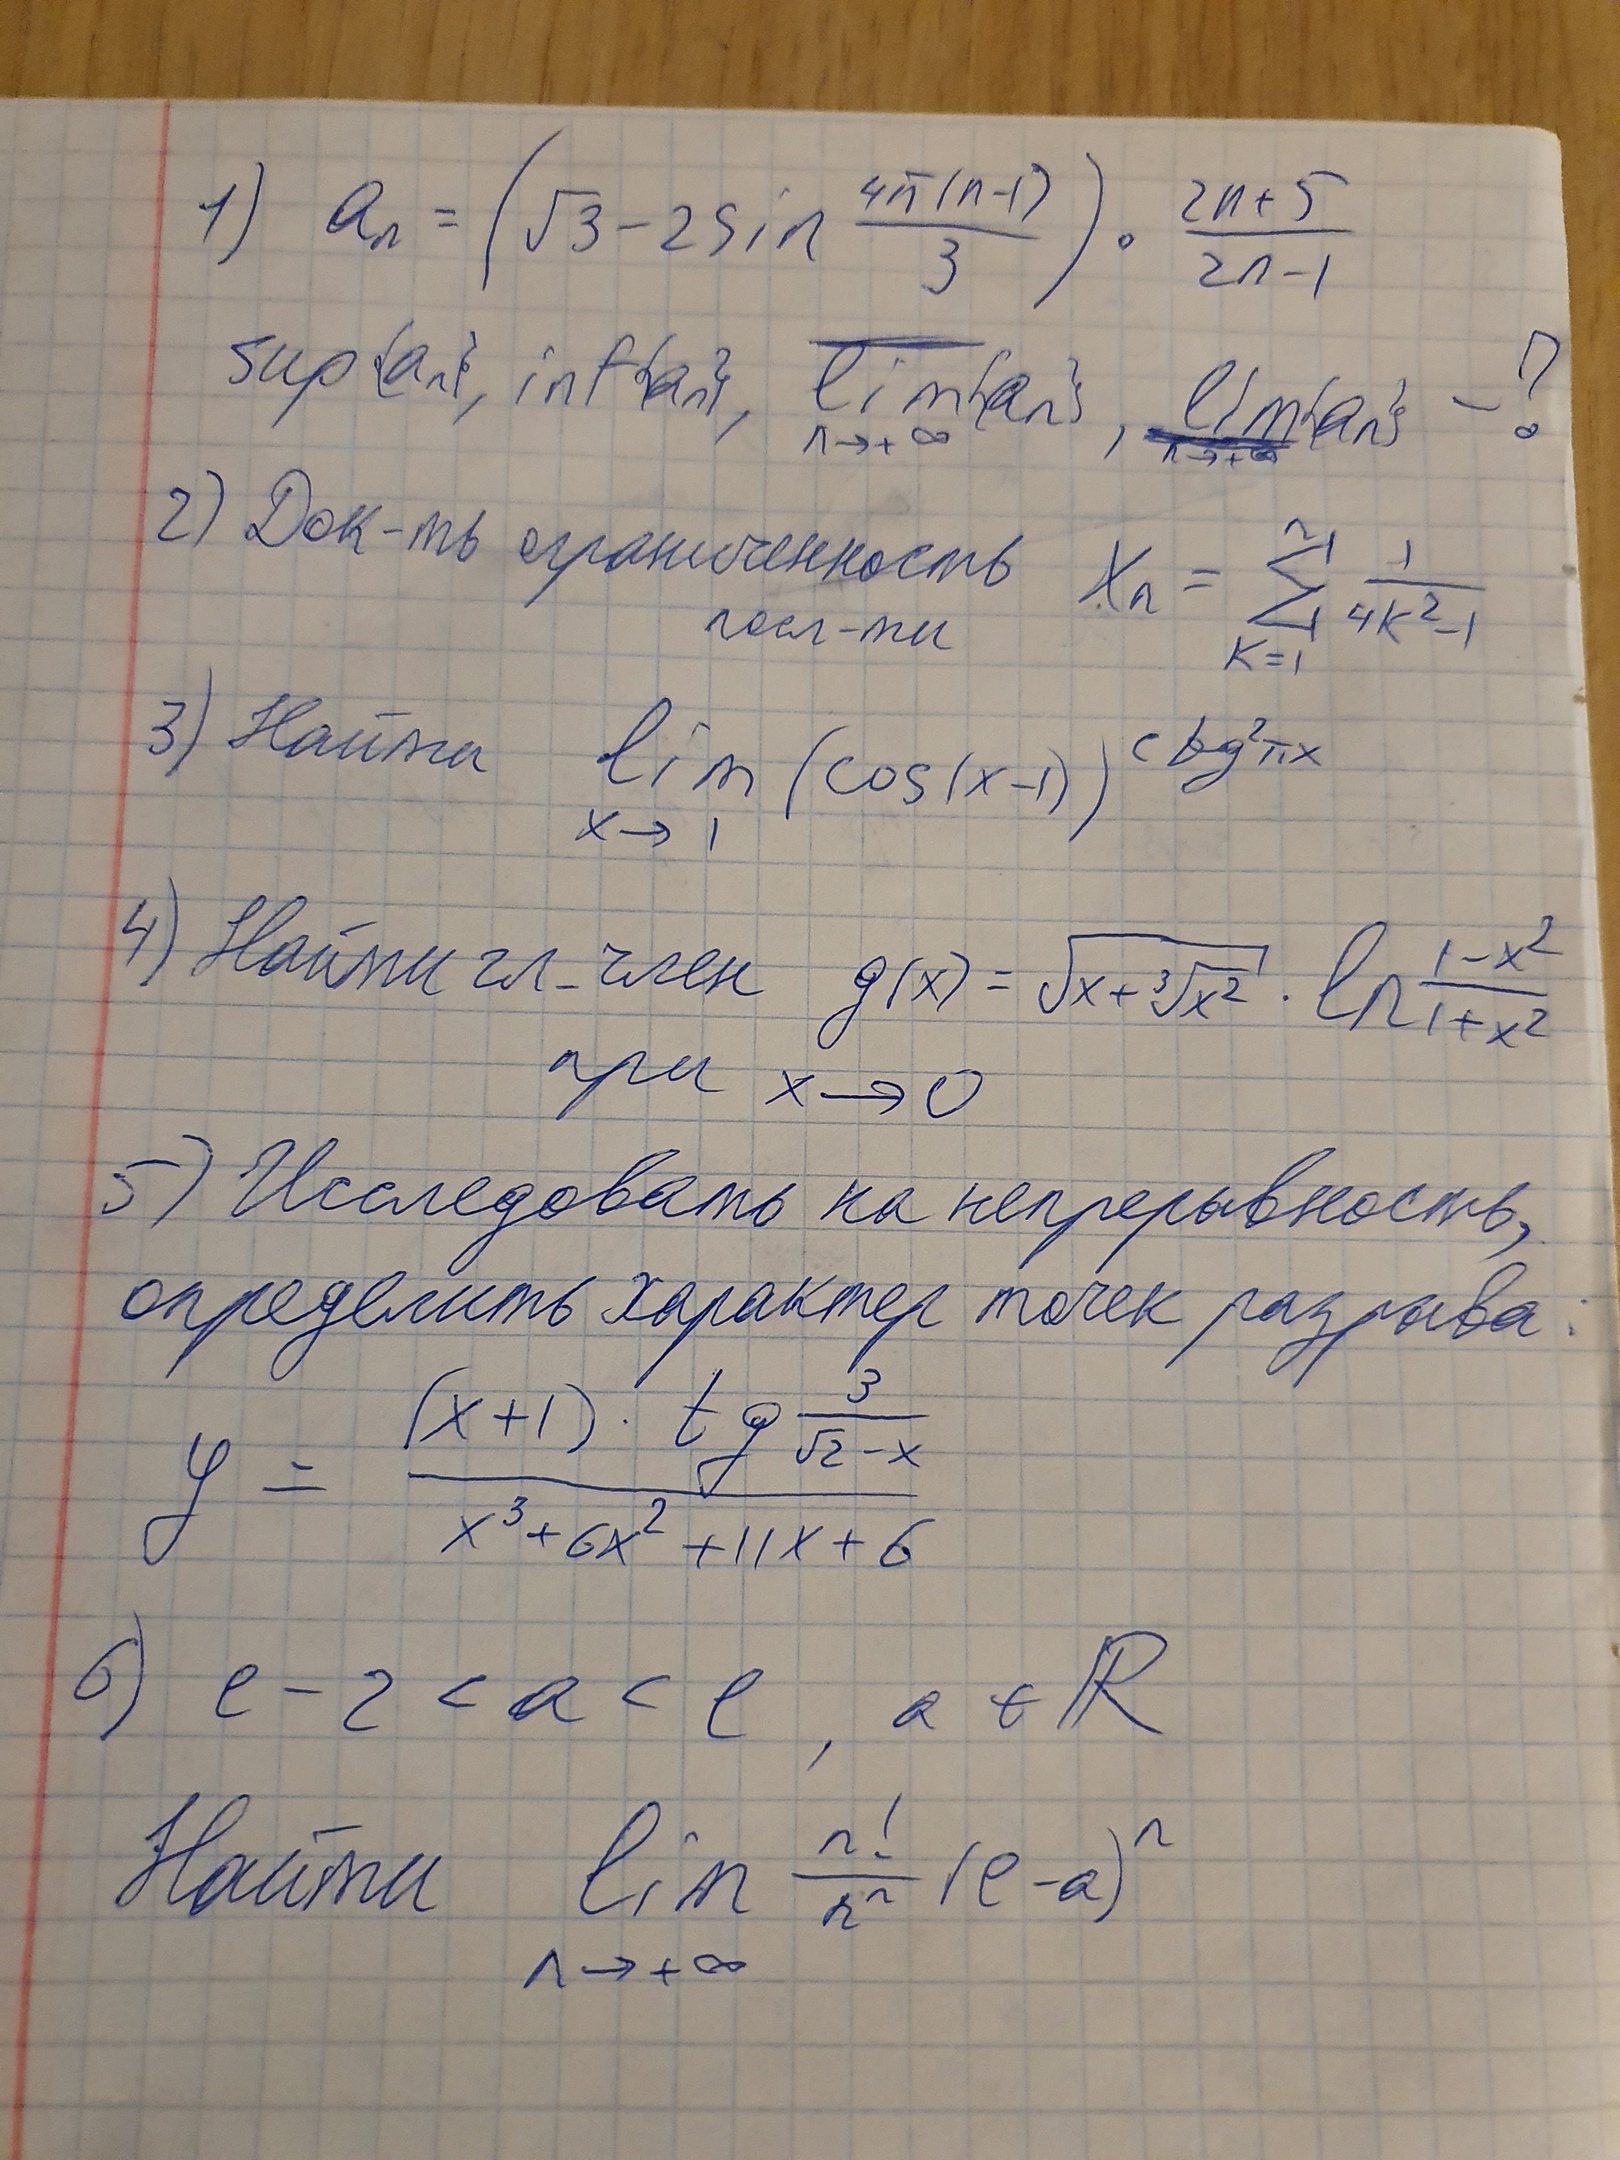 1) aₙ = (√3 - 2sin 4π(n-1)/3) · (2n+5)/(2n-1)
sup{aₙ}, inf{aₙ}, \overline{lim}_{n→+∞}{aₙ}, \underline{lim}_{n→+∞}{aₙ} - ?
2) Док-ть ограниченность
посл-ти xₙ = ∑_{k=1}^{n} 1/(4k²-1)
3) Найти lim_{x→1} (cos(x-1))^{ctg²πx}
4) Найти гл-член g(x) = √(x+∛(x²)) · ln (1-x²)/(1+x²)
при x→0
5) Исследовать на непрерывность,
определить характер точек разрыва:
y = ((x+1) · tg 3/(√2-x))/(x³+6x²+11x+6)
6) e-2 < a < e, a ∈ ℝ
Найти lim_{n→+∞} n!/nⁿ (e-a)ⁿ